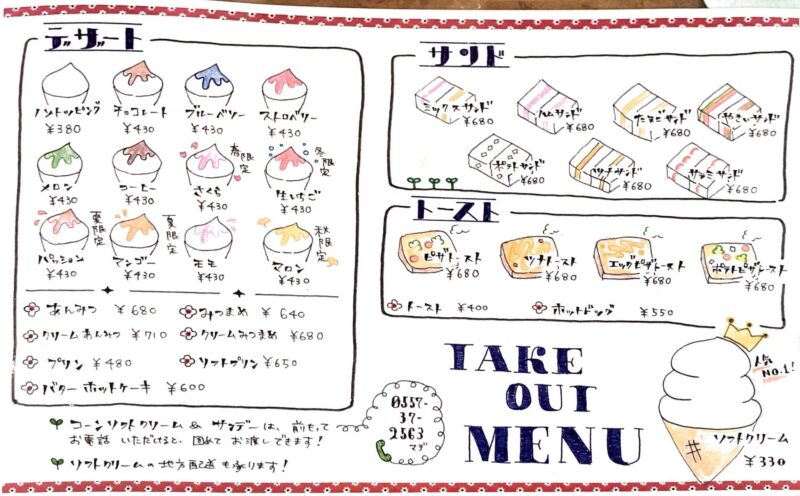 デザート
ノントッピング
¥380
チョコレート
¥430
ブルーベリー
¥430
ストロベリー
¥430
メロン
¥430
コーヒー
¥430
さくら
¥430
春限定
生いちご
¥430
冬限定
パッション
¥430
夏限定
マンゴー
¥430
夏限定
モモ
¥430
マロン
¥430
秋限定
あんみつ ¥680
みつまめ ¥640
クリームあんみつ ¥710
クリームみつまめ ¥680
プリン ¥480
ソフトプリン ¥650
バターホットケーキ ¥600
コーンソフトクリーム & サンデーは、前もって
お電話いただけると、固めてお渡しできます!
ソフトクリームの地方配送も承ります!
0557-
37-
2563
マデ
サンド
ミックスサンド
¥680
ハムサンド
¥680
たまごサンド
¥680
やさいサンド
¥680
ポテトサンド
¥680
ツナサンド
¥680
サラミサンド
¥680
トースト
ピザトースト
¥680
ツナトースト
¥680
エッグピザトースト
¥680
ポテトピザトースト
¥680
トースト ¥400
ホットドッグ ¥550
TAKE
OUT
MENU
人気
NO.1!
ソフトクリーム
¥330